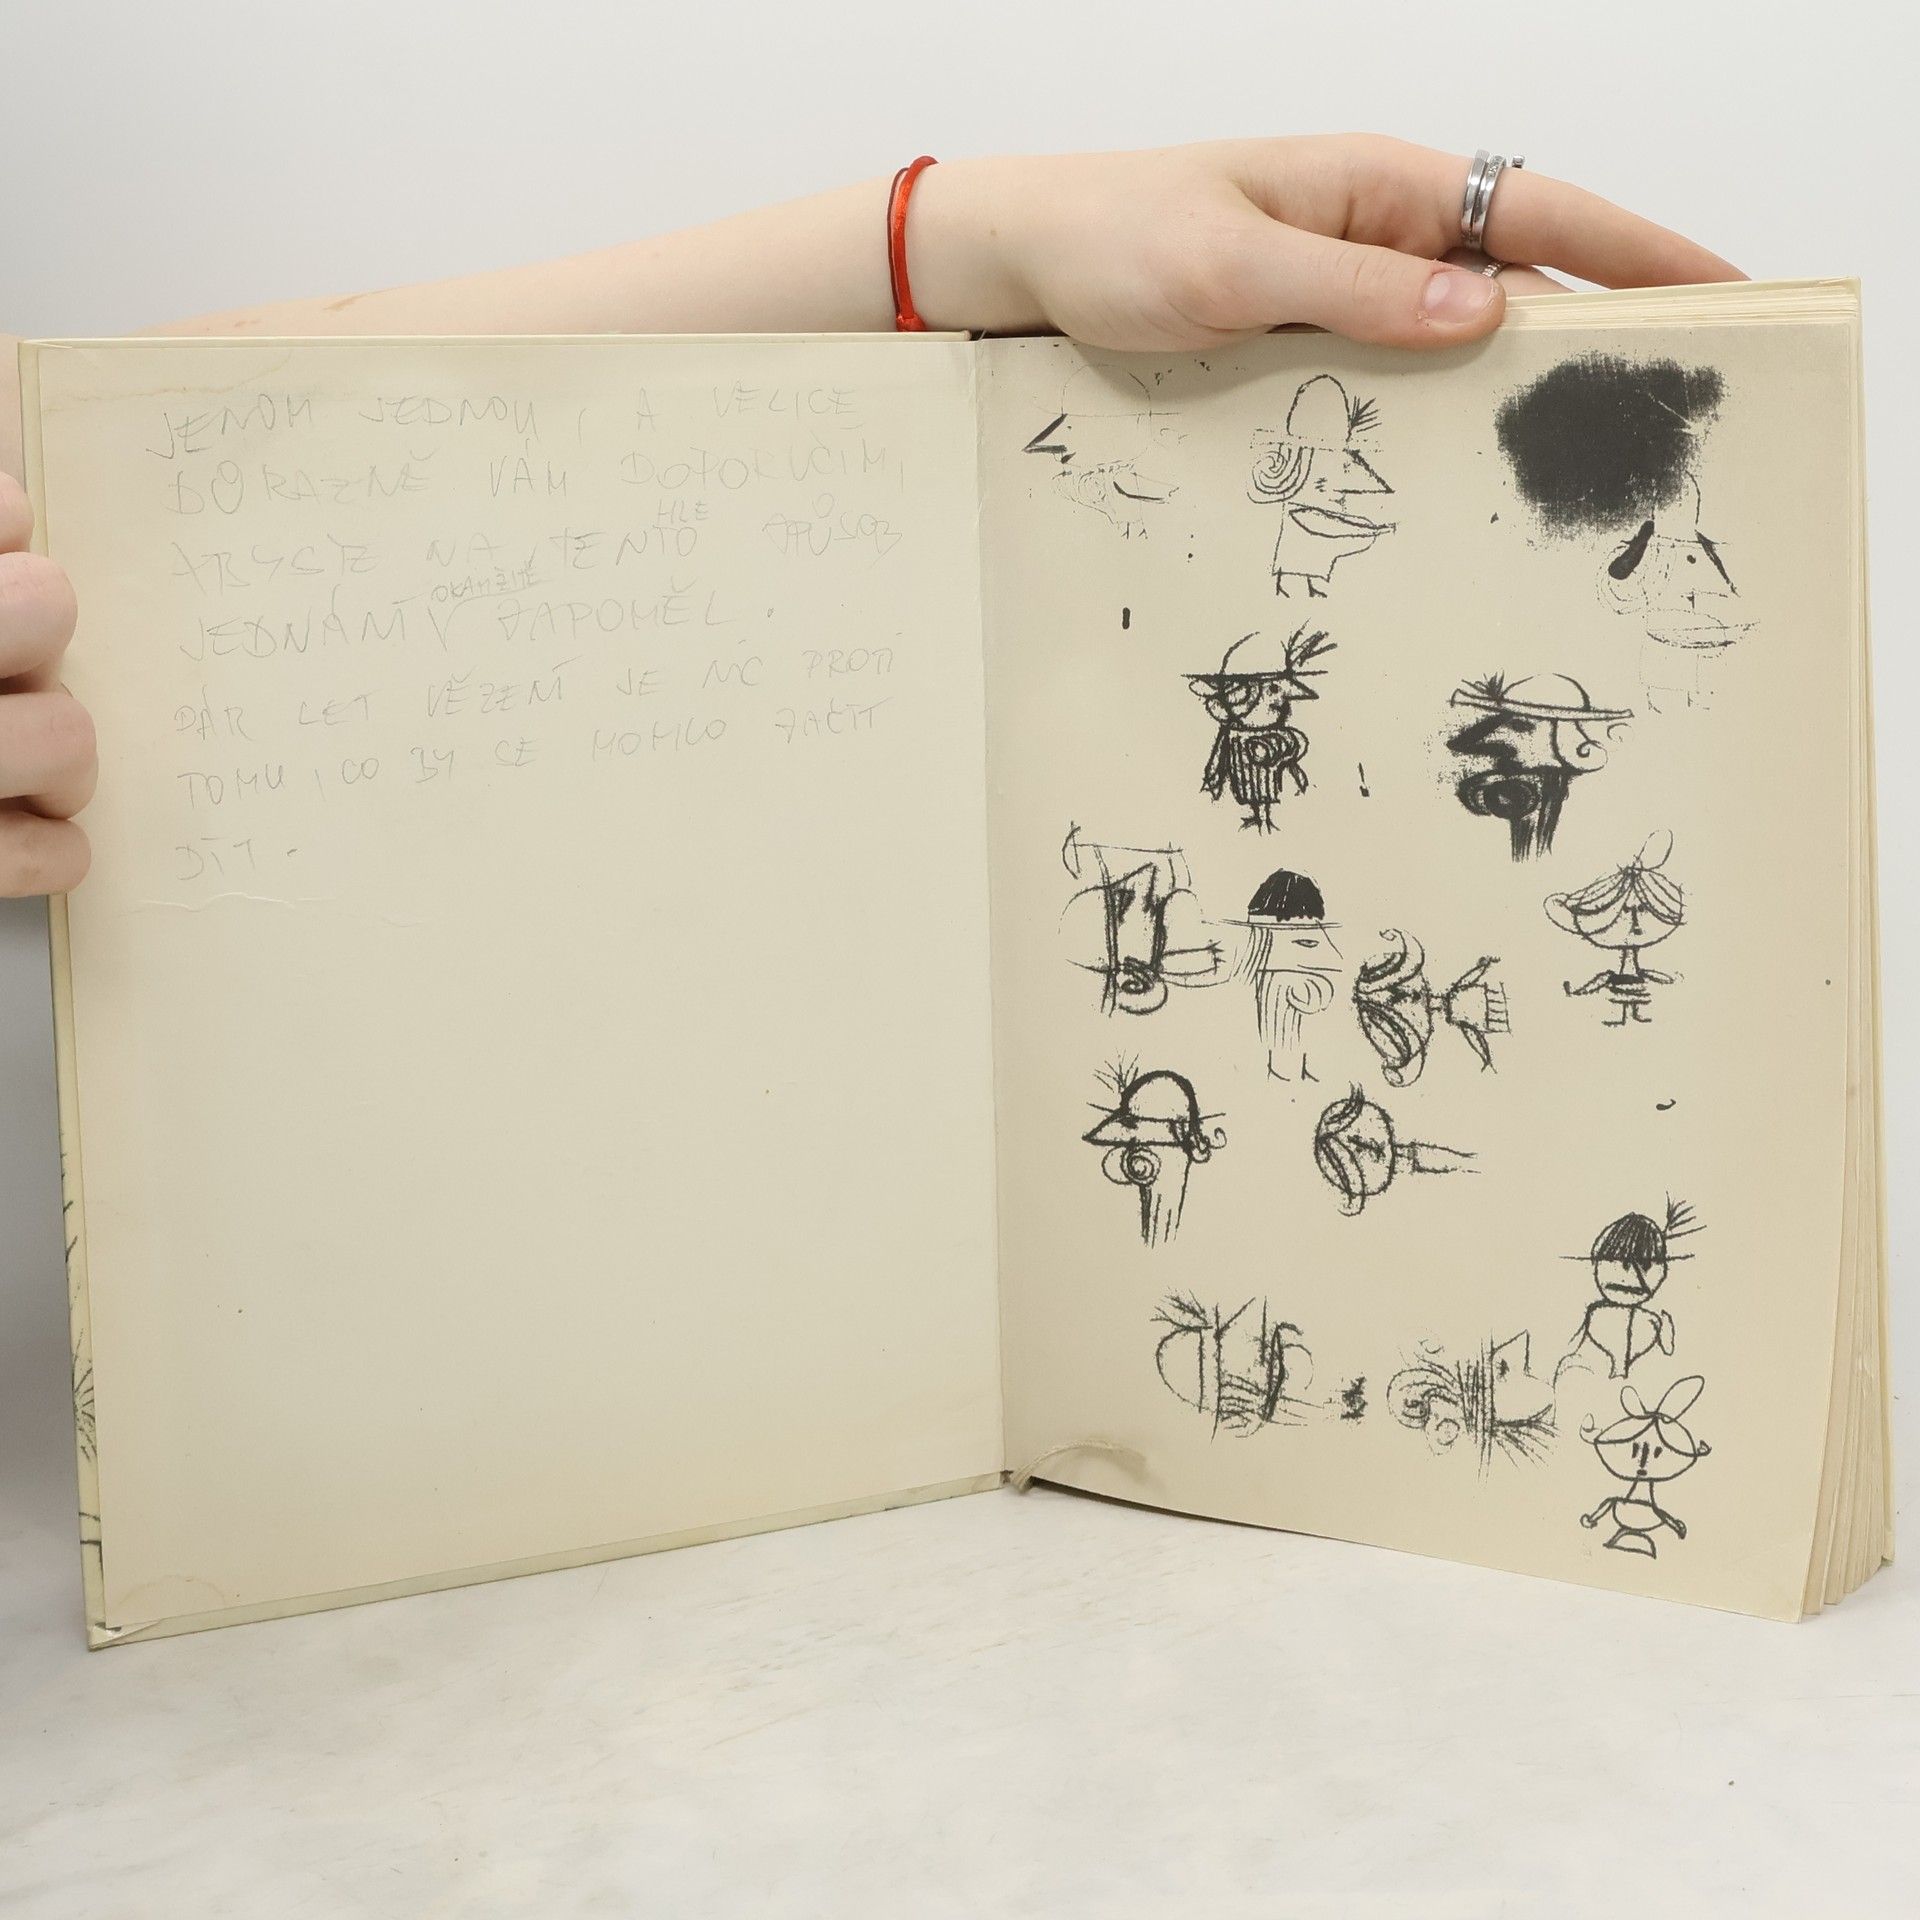 JENOM JEDNOU, A VELICE
DŮRAZNĚ VÁM DOPORUČIM,
HLE
ABYSTE NA TENTO ZPŮSOB
OKAMŽITĚ
JEDNÁNÍ V ZAPOMĚL.
PÁR LET VĚZENÍ JE NIC PROTI
TOMU, CO BY SE MOHLO ZAČÍT
DÍT.